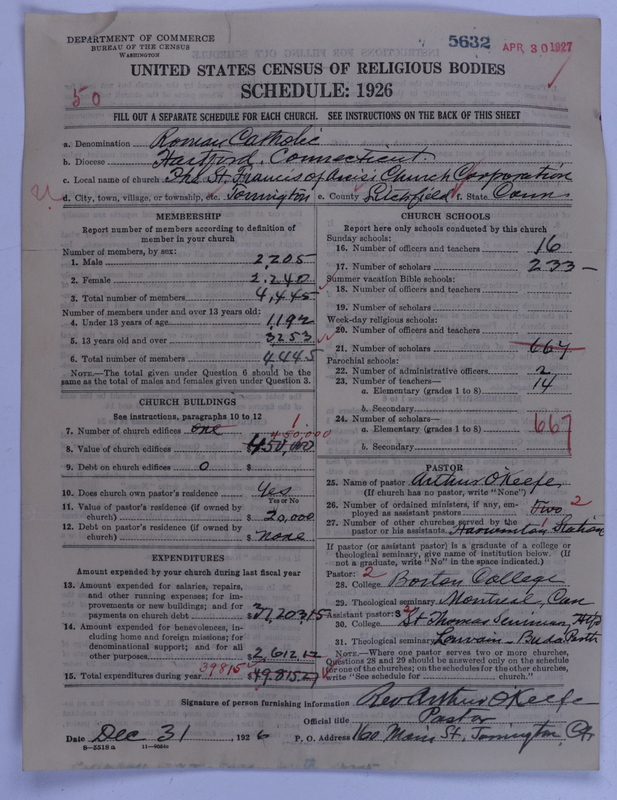 DEPARTMENT OF COMMERCE
BUREAU OF THE CENSUS
WASHINGTON
5632
APR 30 1927
50
UNITED STATES CENSUS OF RELIGIOUS BODIES
SCHEDULE: 1926
FILL OUT A SEPARATE SCHEDULE FOR EACH CHURCH. SEE INSTRUCTIONS ON THE BACK OF THIS SHEET
a. Denomination Roman Catholic
b. Diocese Hartford, Connecticut.
c. Local name of church The St. Francis of Assisi Church Corporation
d. City, town, village, or township, etc. Torrington e. County Litchfield f. State Conn
MEMBERSHIP
Report number of members according to definition of
member in your church
Number of members, by sex:
1. Male 2205
2. Female 2240
3. Total number of members 4,445
Number of members under and over 13 years old:
4. Under 13 years of age 1192
5. 13 years old and over 3253
6. Total number of members 4,445
NOTE.—The total given under Question 6 should be the
same as the total of males and females given under Question 3.
CHURCH BUILDINGS
See instructions, paragraphs 10 to 12
7. Number of church edifices one 1
450,000
8. Value of church edifices $ 450,000
9. Debt on church edifices 0 $
10. Does church own pastor's residence Yes
Yes or No
11. Value of pastor's residence (if owned by
church) $ 20,000
12. Debt on pastor's residence (if owned by
church) $ none
EXPENDITURES
Amount expended by your church during last fiscal year
13. Amount expended for salaries, repairs,
and other running expenses; for im-
provements or new buildings; and for
payments on church debt $ 37203.15
14. Amount expended for benevolences, in-
cluding home and foreign missions; for
denominational support; and for all
other purposes $ 2,612.12
39815
15. Total expenditures during year $ 49,815.27
CHURCH SCHOOLS
Report here only schools conducted by this church
Sunday schools:
16. Number of officers and teachers 16
17. Number of scholars 233 –
Summer vacation Bible schools:
18. Number of officers and teachers
19. Number of scholars
Week-day religious schools:
20. Number of officers and teachers
21. Number of scholars 667
Parochial schools:
22. Number of administrative officers 2
23. Number of teachers—
a. Elementary (grades 1 to 8) 14
b. Secondary
24. Number of scholars—
a. Elementary (grades 1 to 8) 667
b. Secondary
PASTOR
25. Name of pastor Arthur O'Keefe
(If church has no pastor, write "None")
26. Number of ordained ministers, if any, em-
ployed as assistant pastors Two 2
27. Number of other churches served by the
pastor or his assistants 1 Station
If pastor (or assistant pastor) is a graduate of a college or
theological seminary, give name of institution below. (If
not a graduate, write "No" in the space indicated.)
Pastor: 2
28. College Boston College
29. Theological seminary Montreal, Can
Assistant pastor:
30. College St Thomas Seminary, Htfd
31. Theological seminary Louvain - Buda Pesth
NOTE.—Where one pastor serves two or more churches,
Questions 28 and 29 should be answered only on the schedule
for one of the churches; on the schedules for the other churches,
write "See schedule for church."
Signature of person furnishing information Rev Arthur O'Keefe
Official title Pastor
Date Dec 31, 1926 P. O. Address 160 Main St. Torrington, Ct.
8-5518a 11-9051